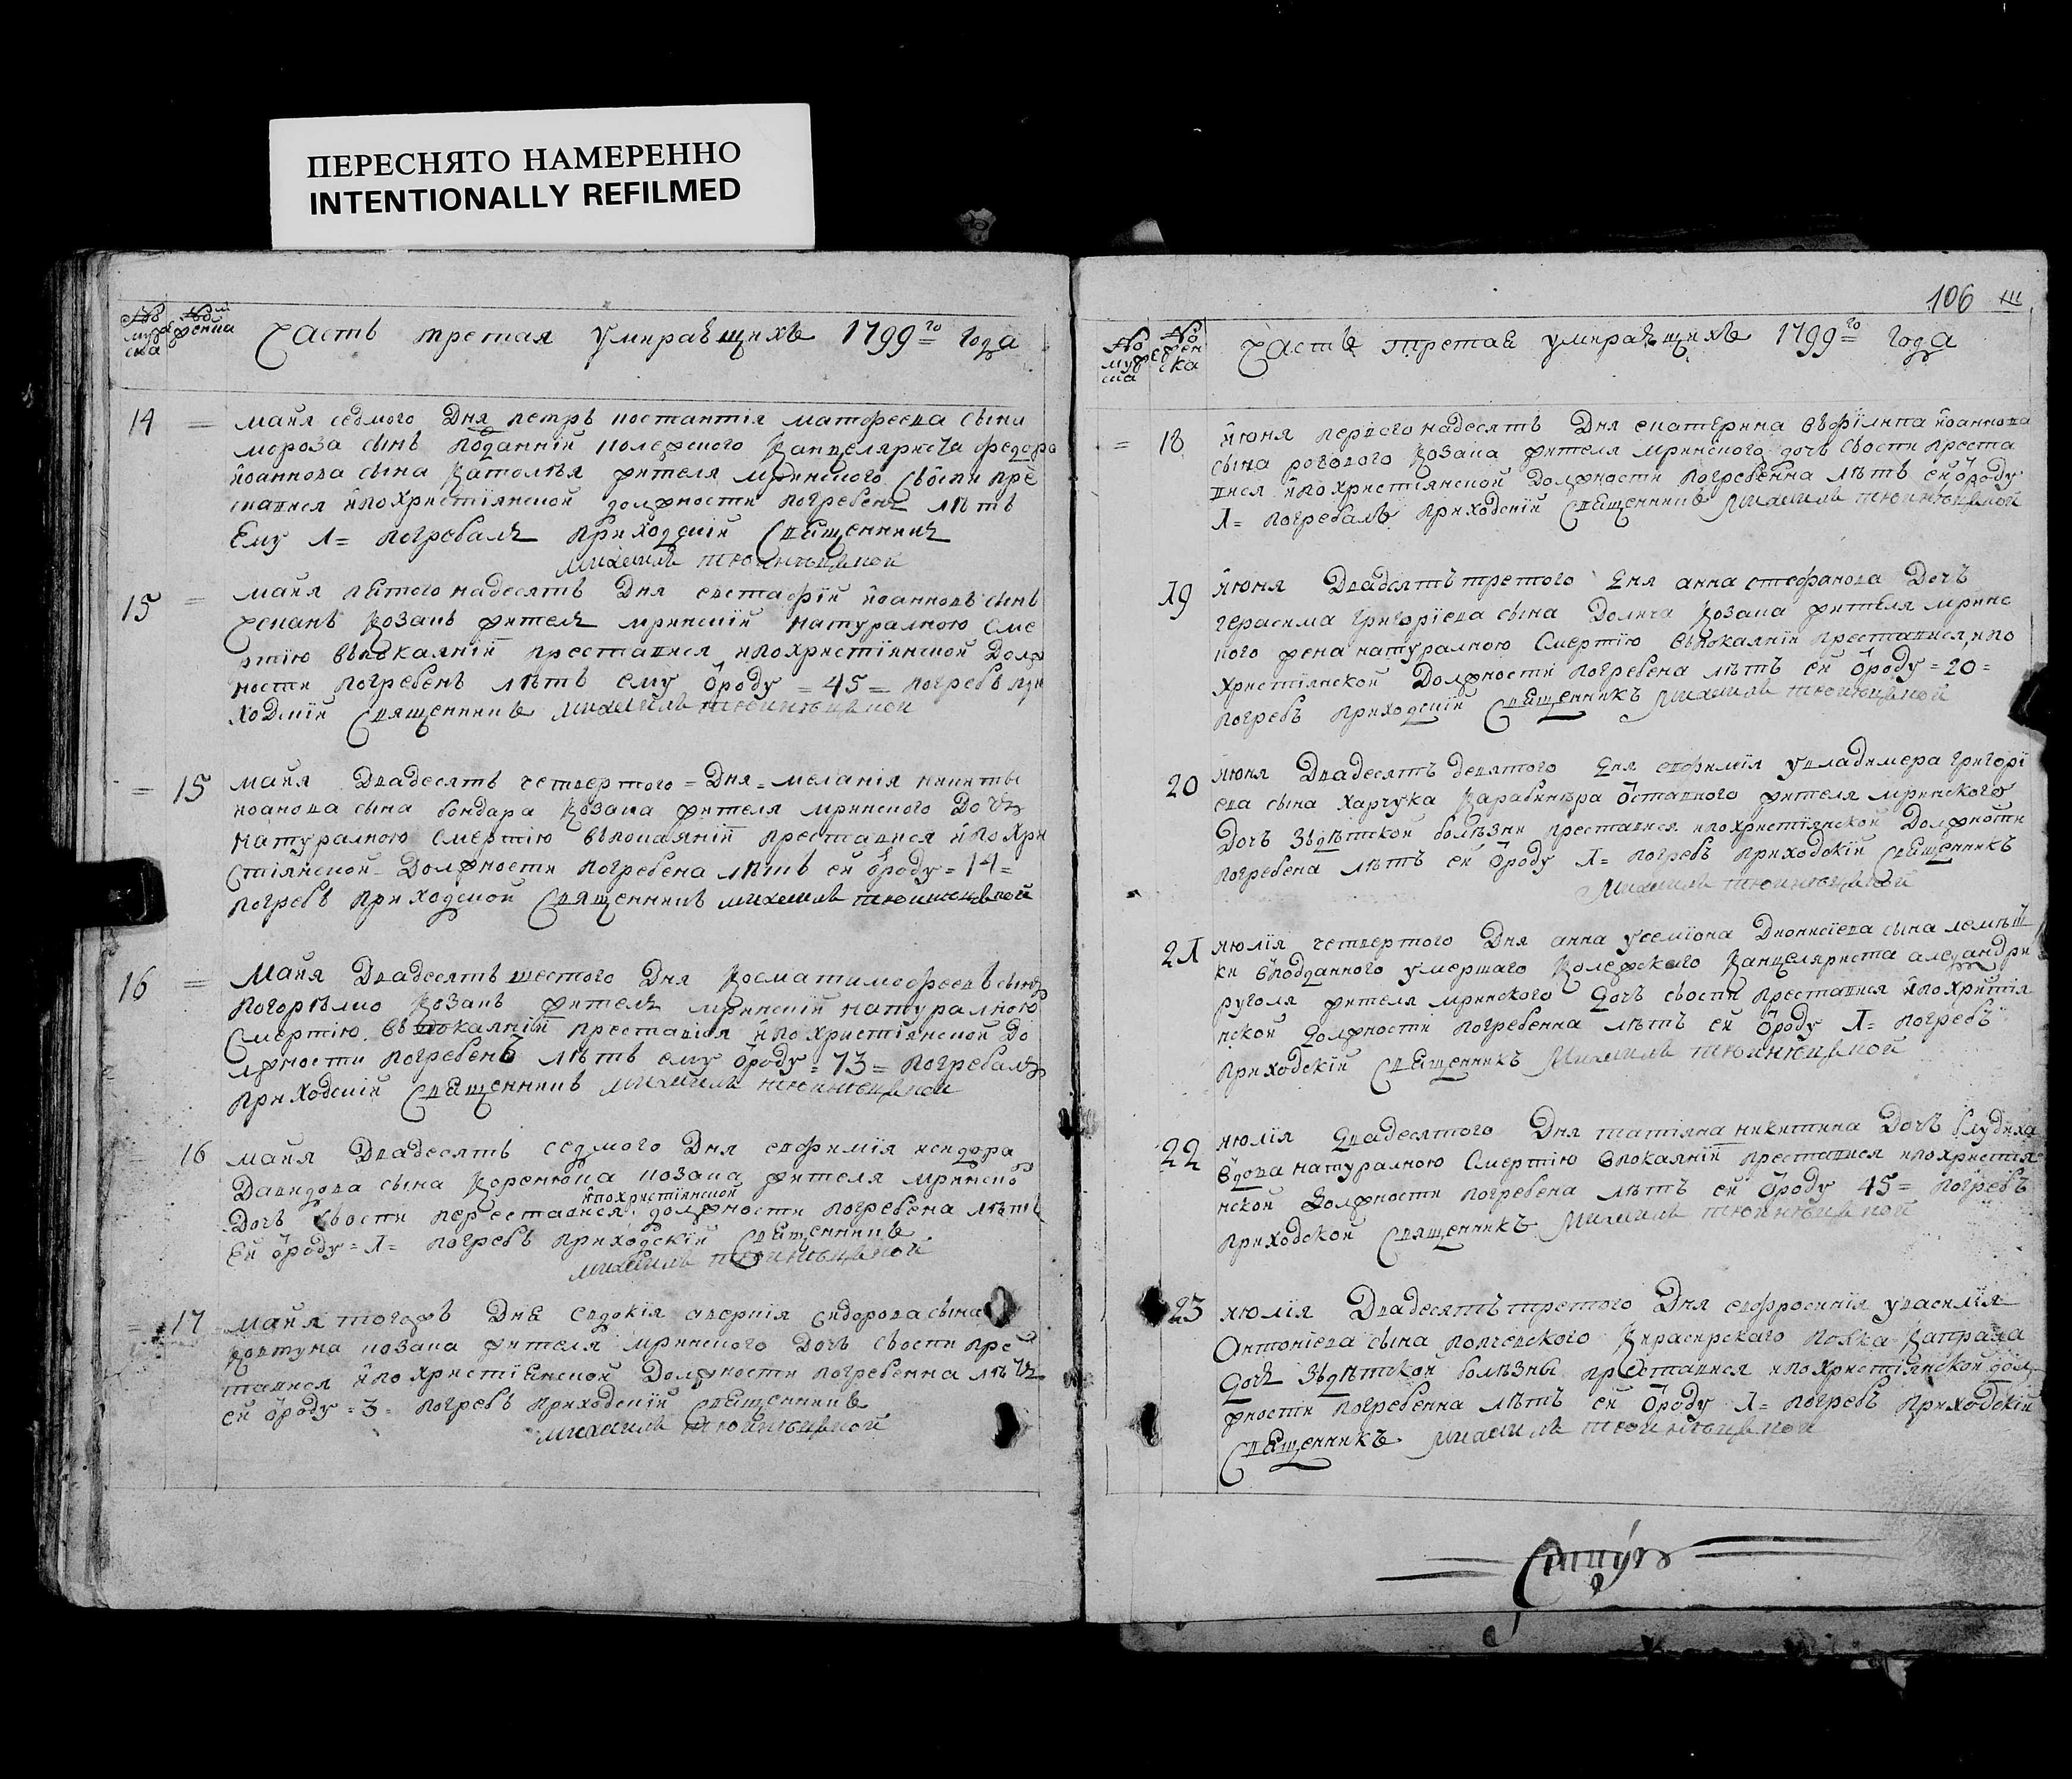 ПЕРЕСНЯТО НАМЕРЕННО
INTENTIONALLY REFILMED
Часть третая умирающихъ 1799го года
14 = майя седмого Дня петръ матфеева сына
мороза сынъ подданній федора
иоаннова сына жителя мринского свости пре
ставися и по христіянской должности погребенъ лѣтъ
Ему 1 = погребалъ приходскій священникъ
михаилъ
15 = майя пятого надесять Дня евстафій иоанновъ сынъ
козакъ жителъ мринскій натуралною сме
ртію въ покаяніи преставися и по христіянской долж
ности погребенъ лѣтъ ему ѿроду = 45 = погребъ при
ходскій священникъ михаилъ
= 15 майя двадесять четвертого = Дня = меланія никиты
иоанова сына бондара козака жителя мринского дочъ
натуралною смертію въ покаяніи преставися и по хри
стіянской должности погребена лѣтъ ей ѿроду = 14 =
погребъ приходской священникъ михаилъ
16 = Майя двадесять шестого Дня козма тимофеевъ сынъ
погорѣлко козакъ жителъ мринскій натуралною
смертію въ покаяніи преставися и по христіянской до
лжности погребенъ лѣтъ ему ѿроду = 73 = погребалъ
приходскій священникъ михаилъ
= 16 майя двадесять седмого Дня евфимія исидора
Давидова сына козака жителя мринско
дочъ свости преставися и по христіянской должности погребена лѣтъ
ей ѿроду = 1 = погребъ приходскій священникъ
михаилъ
= 17 майя тогожъ Дня евдокія аверкія сидорова сына
ковтуна козака жителя мринского дочъ свости прес
тавися и по христіянской должности погребенна лѣтъ
ей ѿроду = 3 = погребъ приходскій священникъ
михаилъ
106
Часть третая умирающихъ 1799го года
= 18 июня первого надесять Дня екатерина въ филипа иоаннова
сына рогового козака жителя мринского дочъ свости преста
вися и по христіянской должности погребенна лѣтъ ей ѿроду
1 = погребалъ приходскій священникъ михаилъ
19 июня двадесять третого Дня анна стефанова дочъ
герасима григоріева сына козака жителя мринс
кого жена натуралною смертію въ покаяніи преставися и по
христіянской должности погребена лѣтъ ей ѿроду = 20 =
погребъ приходскій священникъ михаилъ
20 июня двадесять девятого Дня евфимія у владимера григорі
ева сына харчука карабинѣра ѿставного жителя мринского
дочъ зъ дѣтской болѣзни преставися и по христіянской должности
погребена лѣтъ ей ѿроду 1 = погребъ приходскій священникъ
михаилъ
21 июлія четвертого Дня анна у семіона дионисіева сына лемѣш
ки подданного умершаго колежского канцеляриста александри
руголя жителя мринского дочъ свости преставися и по христія
нской должности погребенна лѣтъ ей ѿроду 1 = погребъ
приходскій священникъ михаилъ
22 июлія двадесятого Дня татіяна никитина дочъ
вдова натуралною смертію в покаяніи преставися и по христія
нской должности погребена лѣтъ ей ѿроду 45 = погребъ
приходской священникъ михаилъ
23 июлія двадесять третого Дня евфросинія у василія
антоніева сына кирасирского полка капрала
дочъ зъ дѣтской болѣзны преставися и по христіянской дол
жности погребенна лѣтъ ей ѿроду 1 = погребъ приходскій
священникъ михаилъ